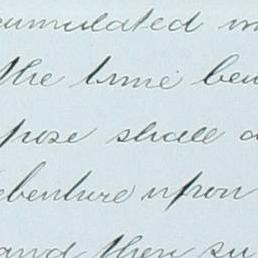 cumulated in
the time bein
pose shall a
ebenture upon
and then su